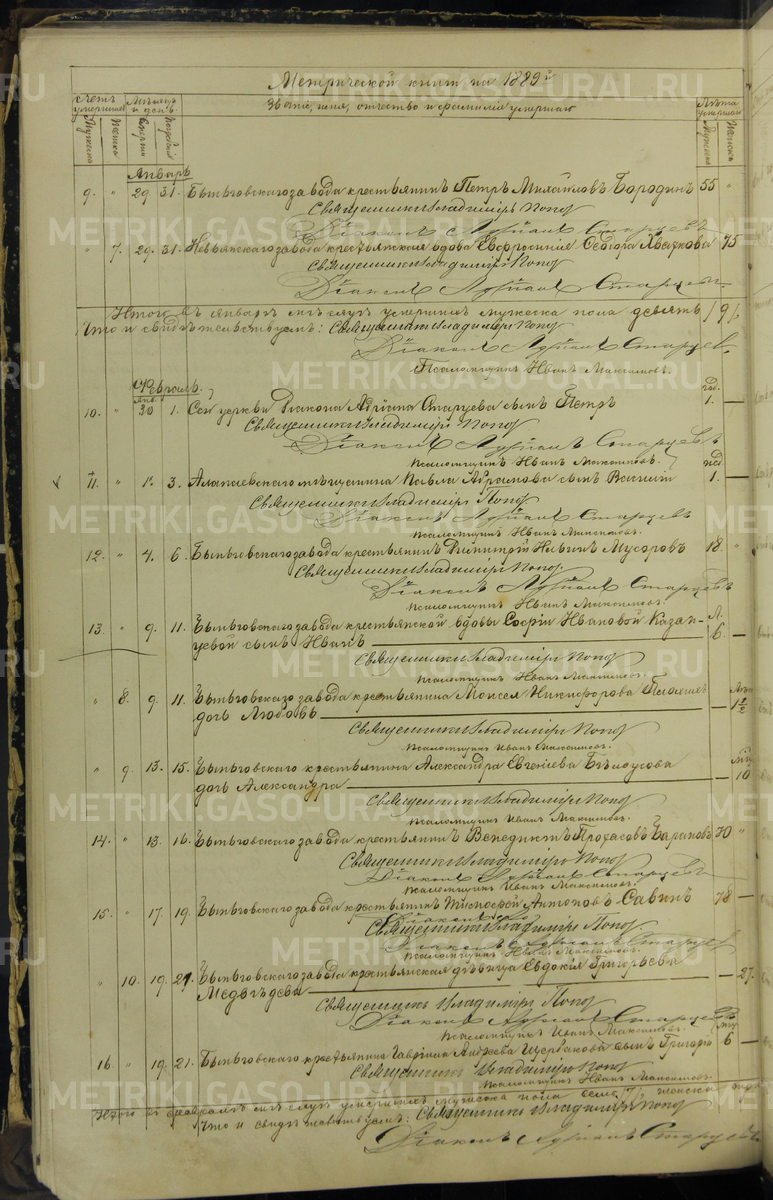 Метрической книги на 1889 й
Счетъ умершихъ. Мѣсяцъ и день. Званіе, имя, отчество и фамилія умершаго Лѣта умершаго
Мужска Женска Смерти Погребенія Мужска Женска
Январь
9. " 29. 31. Быньговскаго завода крестьянинъ Петръ Михайловъ Бородинъ 55 "
Священникъ Владиміръ Попов
Діаконъ Адріанъ Старцевъ
" 7. 29. 31. Невьянскаго завода крестьянская вдова Евфросинія Ѳедорова 75
Священникъ Владиміръ Попов
Діаконъ Адріанъ Старцевъ
Итого въ январѣ мѣсяцѣ умершихъ мужеска пола девять /9/
Что и свидѣтельствуемъ: Священникъ Владиміръ Попов
Діаконъ Адріанъ Старцевъ
Псаломщикъ Иванъ Максимовъ.
Февраль.
10. " Янв. 30 1. Сей церкви Діакона Адріана Старцева сынъ Петръ год. 1. —
Священникъ Владиміръ Попов
Діаконъ Адріанъ Старцевъ
Псаломщикъ Иванъ Максимовъ.
11. " 1. 3. Алапаевскаго мѣщанина Павла Абрамова сынъ Василій 1. —
Священникъ Владиміръ Попов
Діаконъ Адріанъ Старцевъ
Псаломщикъ Иванъ Максимовъ.
12. " 4. 6. Быньговскаго завода крестьянинъ Димитрій Ильинъ Мусоровъ 18. "
Священникъ Владиміръ Попов
Діаконъ Адріанъ Старцевъ
Псаломщикъ Иванъ Максимовъ.
13. " 9. 11. Быньговскаго завода крестьянской вдовы Софіи Ивановой Казан-
цевой сынъ Иванъ 6. —
Священникъ Владиміръ Попов
Псаломщикъ Иванъ Максимовъ.
" 8. 9. 11. Быньговскаго завода крестьянина Моисея Никифорова
дочь Любовь
Священникъ Владиміръ Попов
Псаломщикъ Иванъ Максимовъ.
" 9. 13. 15. Быньговскаго крестьянина Александра Евгеніева Бѣлоусова
дочь Александра — 10
Священникъ Владиміръ Попов
Псаломщикъ Иванъ Максимовъ.
14. " 13. 16. Быньговскаго завода крестьянинъ Венедиктъ Протасовъ Барановъ 70 "
Священникъ Владиміръ Попов
Діаконъ Адріанъ Старцевъ
Псаломщикъ Иванъ Максимовъ.
15. " 17. 19. Быньговскаго завода крестьянинъ Тимоѳей Антоновъ Савинъ 78 —
Священникъ Владиміръ Попов
Діаконъ Адріанъ Старцев
Псаломщикъ Иванъ Максимовъ.
" 10. 19. 21. Быньговскаго завода крестьянская дѣвица Евдокія Григорьева
Медвѣдева — 27.
Священникъ Владиміръ Попов
Діаконъ Адріанъ Старцевъ
Псаломщикъ Иванъ Максимовъ.
16. " 19. 21. Быньговскаго крестьянина Гавріила Андреева Щербакова сынъ Григорій 6 —
Священникъ Владиміръ Попов
Псаломщикъ Иванъ Максимовъ.
Итого въ февралѣ мѣсяцѣ умершихъ мужеска пола семь /7/ женска
Что и свидѣтельствуемъ: Священникъ Владиміръ Попов
Діаконъ Адріанъ Старцевъ
METRIKI.GASO-URAL.RU